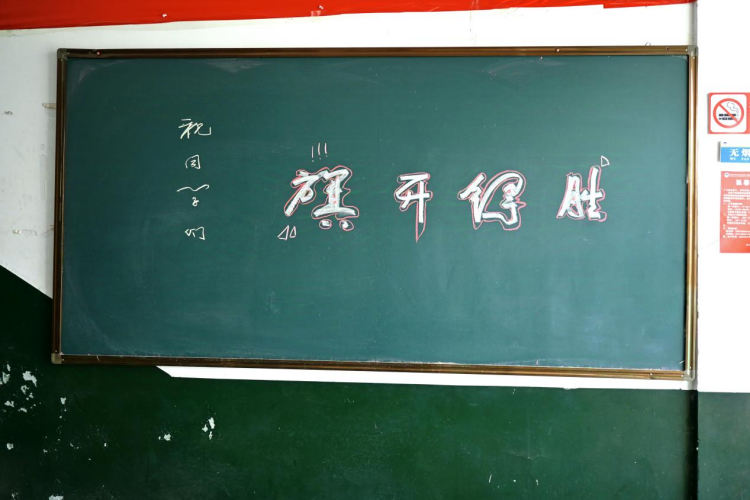 祝同学们
旗开得胜
!!!
无烟